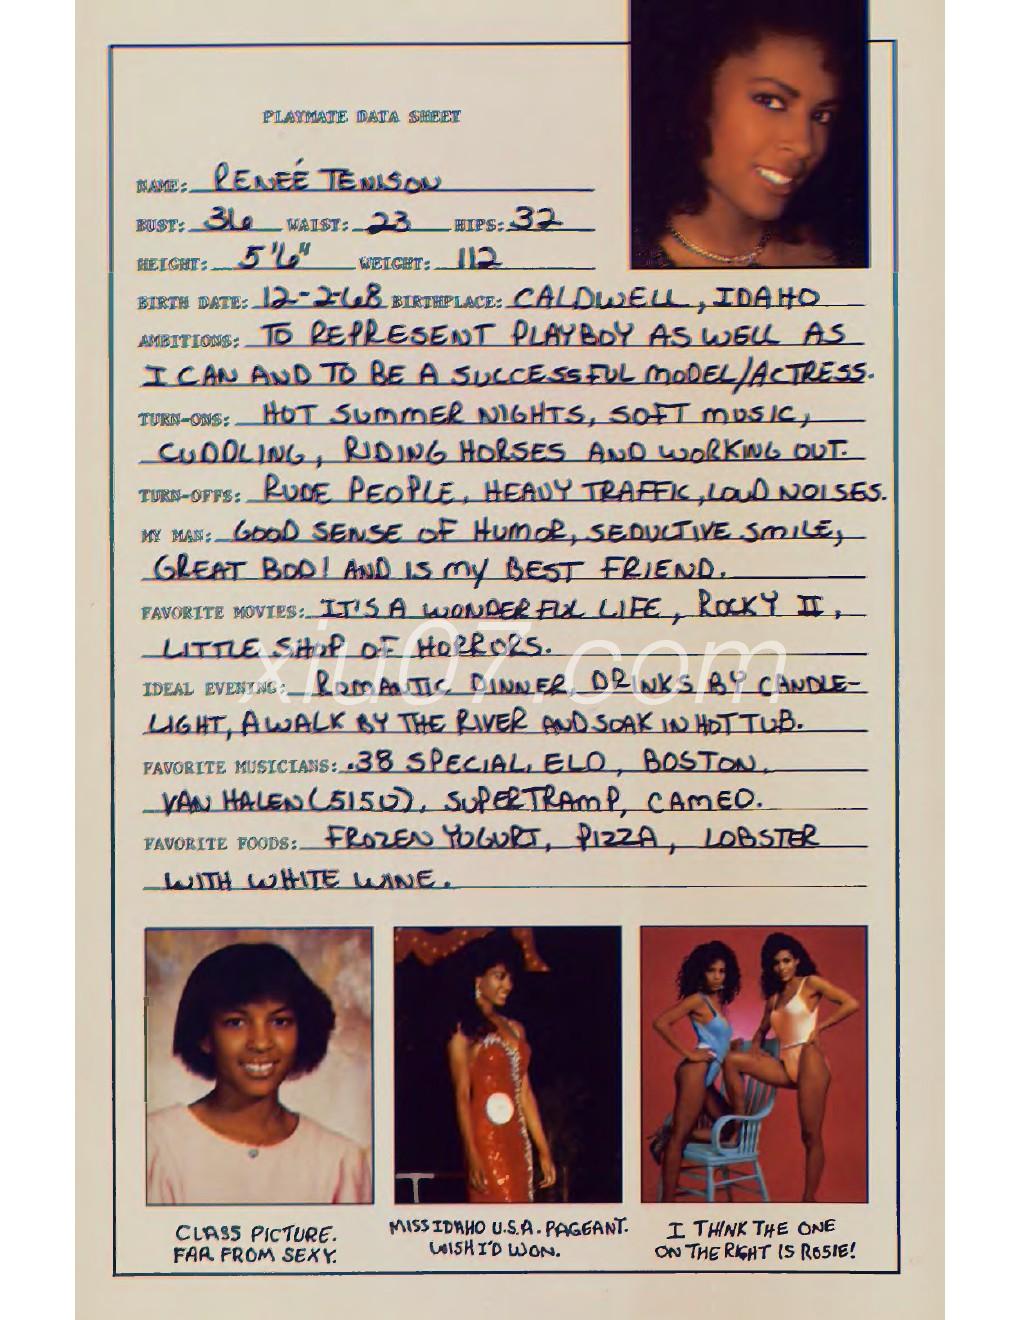 PLAYMATE DATA SHEET
NAME: RENEÉ TENISON
BUST: 36 WAIST: 23 HIPS: 32
HEIGHT: 5'6" WEIGHT: 112
BIRTH DATE: 12-2-68 BIRTHPLACE: CALDWELL, IDAHO
AMBITIONS: TO REPRESENT PLAYBOY AS WELL AS
I CAN AND TO BE A SUCCESSFUL MODEL/ACTRESS.
TURN-ONS: HOT SUMMER NIGHTS, SOFT MUSIC,
CUDDLING, RIDING HORSES AND WORKING OUT.
TURN-OFFS: RUDE PEOPLE, HEAVY TRAFFIC, LOUD NOISES.
MY MAN: GOOD SENSE OF HUMOR, SEDUCTIVE SMILE,
GREAT BOD! AND IS MY BEST FRIEND.
FAVORITE MOVIES: IT'S A WONDERFUL LIFE, ROCKY II,
LITTLE SHOP OF HORRORS.
xiu07.com
IDEAL EVENING: ROMANTIC DINNER, DRINKS BY CANDLE-
LIGHT, A WALK BY THE RIVER AND SOAK IN HOT TUB.
FAVORITE MUSICIANS: .38 SPECIAL, ELO, BOSTON,
VAN HALEN (5150), SUPERTRAMP, CAMEO.
FAVORITE FOODS: FROZEN YOGURT, PIZZA, LOBSTER
WITH WHITE WINE.
CLASS PICTURE.
FAR FROM SEXY.
MISS IDAHO U.S.A. PAGEANT.
WISH I'D WON.
I THINK THE ONE
ON THE RIGHT IS ROSIE!